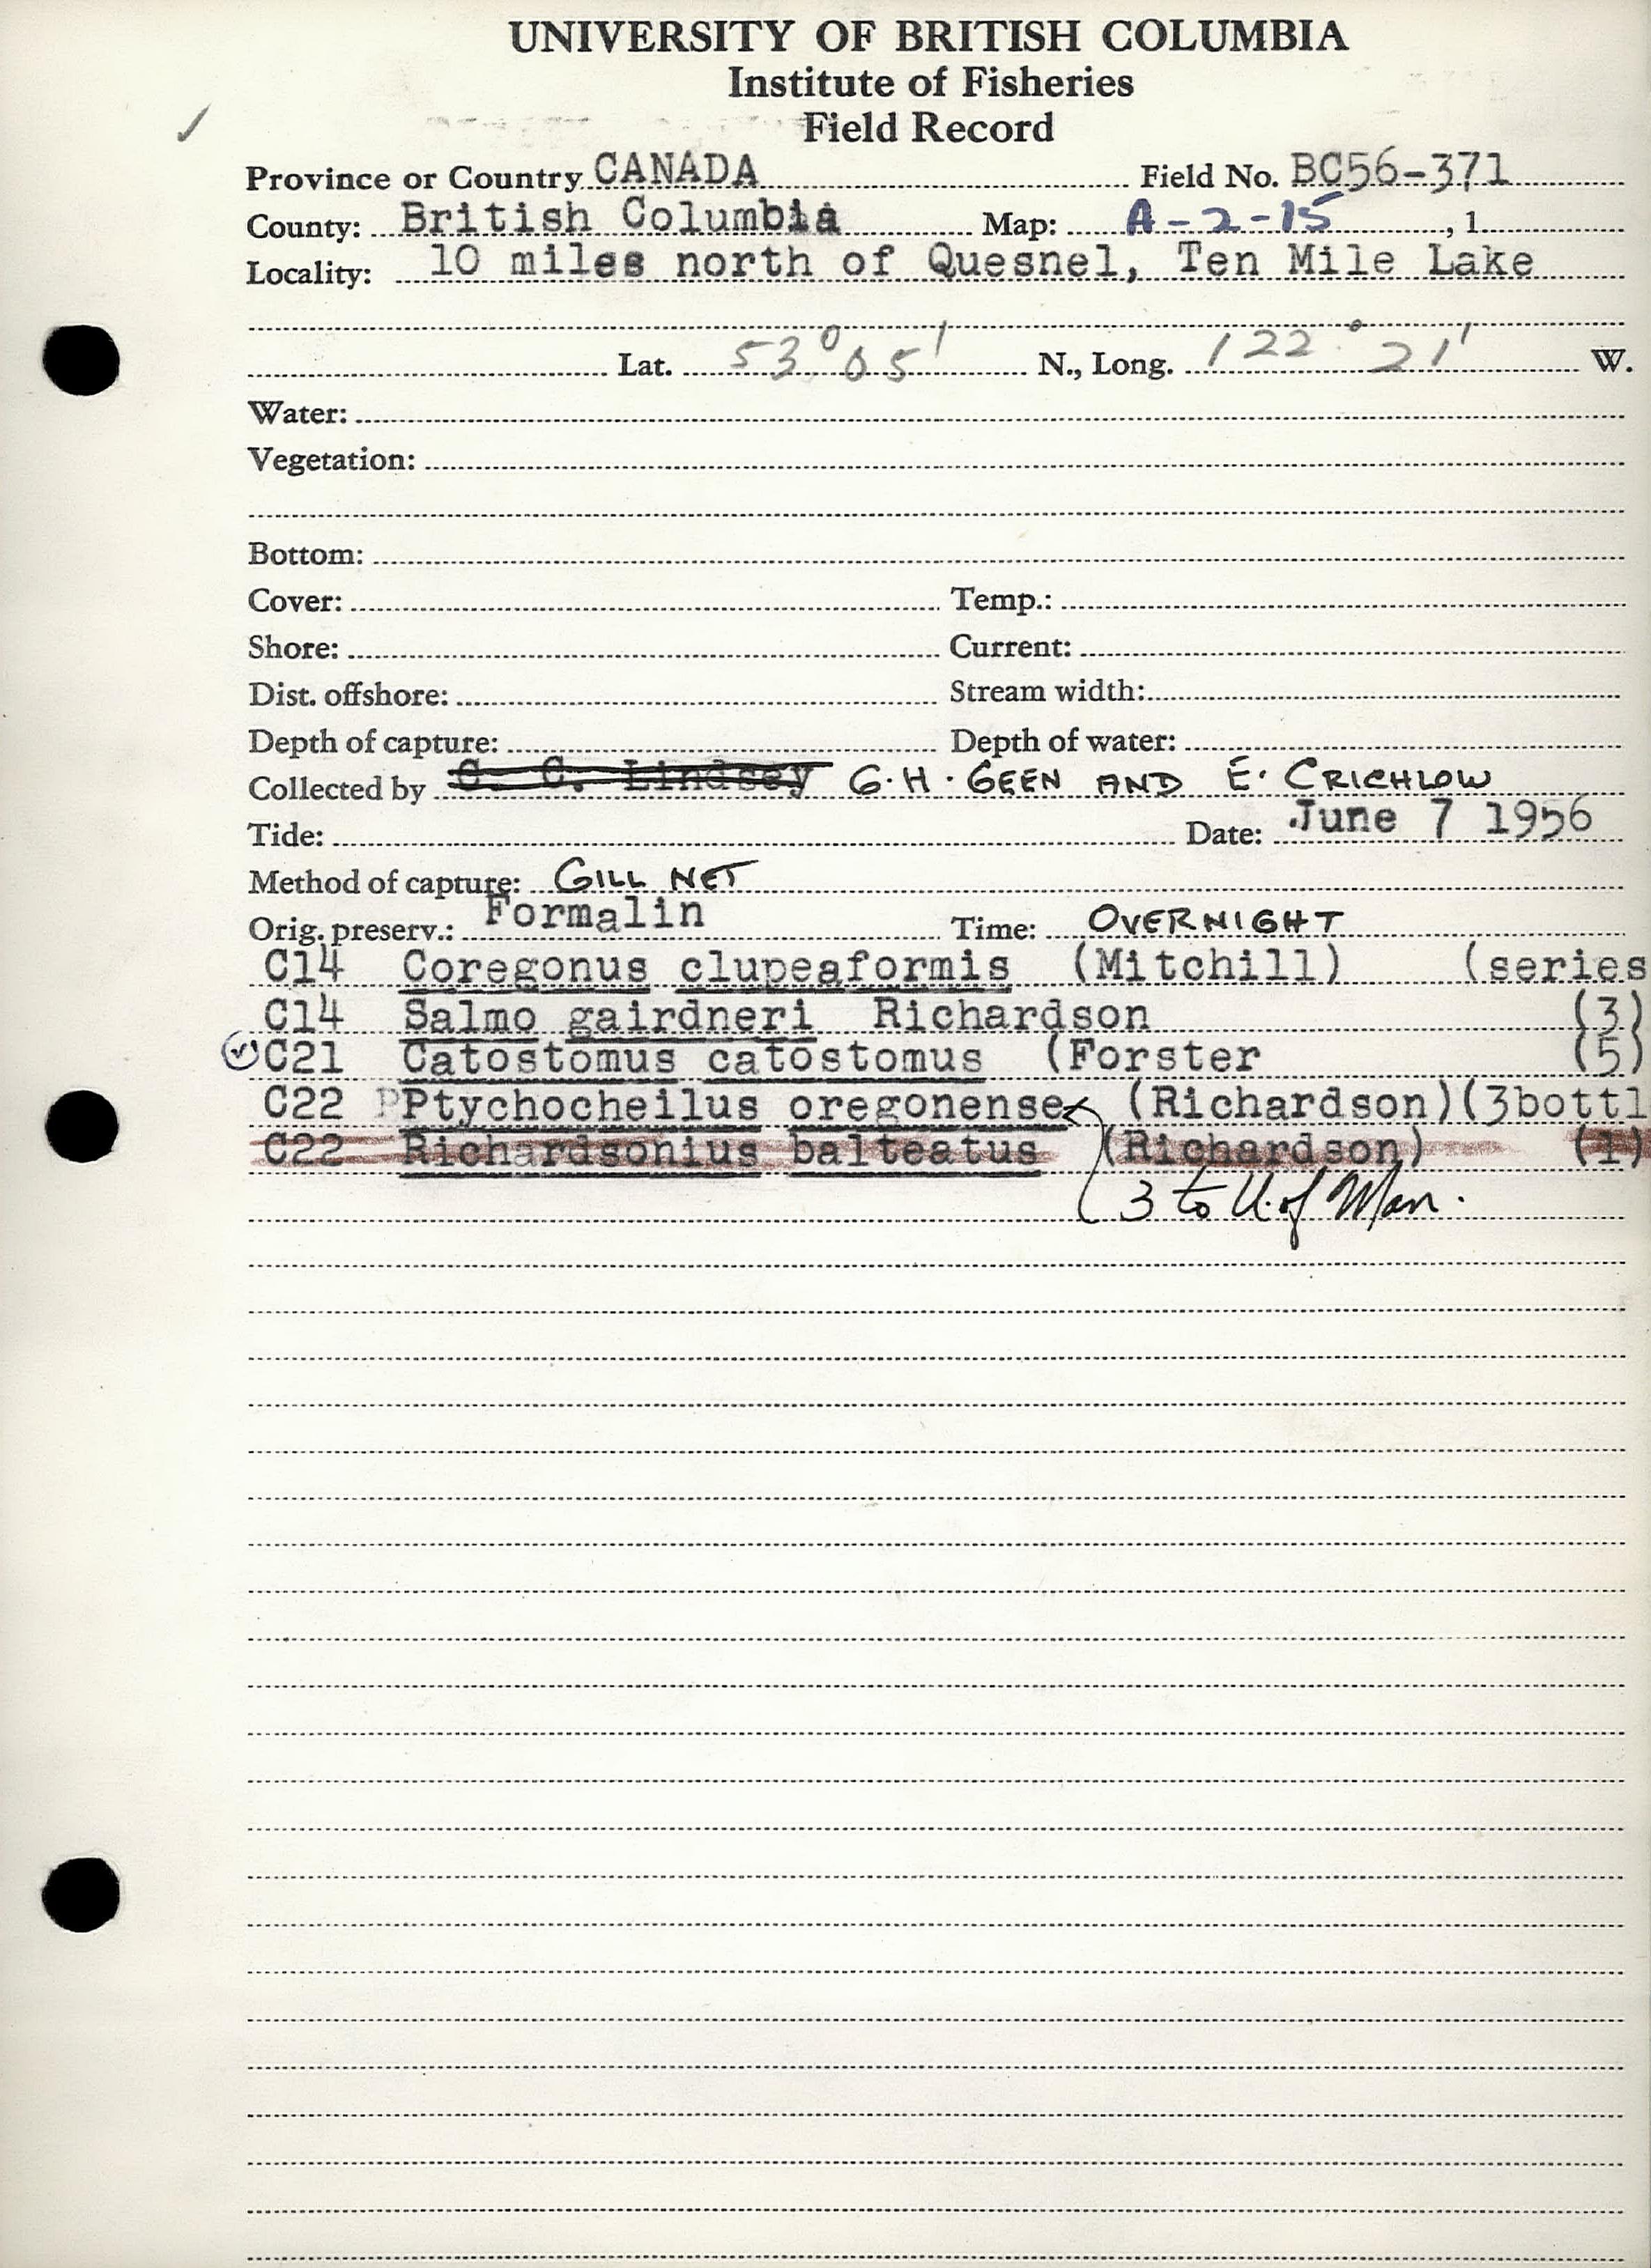 UNIVERSITY OF BRITISH COLUMBIA
Institute of Fisheries
Field Record
Province or Country CANADA Field No. BC56-371
County: British Columbia Map: A-2-15, 1
Locality: 10 miles north of Quesnel, Ten Mile Lake
Lat. 53°05' N., Long. 122°21' W.
Water:
Vegetation:
Bottom:
Cover: Temp.:
Shore: Current:
Dist. offshore: Stream width:
Depth of capture: Depth of water:
Collected by C. C. Lindsey G.H. GEEN AND E. CRICHLOW
Tide: Date: June 7 1956
Method of capture: GILL NET
Orig. preserv.: Formalin Time: OVERNIGHT
C14 Coregonus clupeaformis (Mitchill) (series
C14 Salmo gairdneri Richardson (3)
C21 Catostomus catostomus (Forster (5)
C22 PPtychocheilus oregonense (Richardson)(3bottl
C22 Richardsonius balteatus (Richardson) (1)
3 to U. of Man.